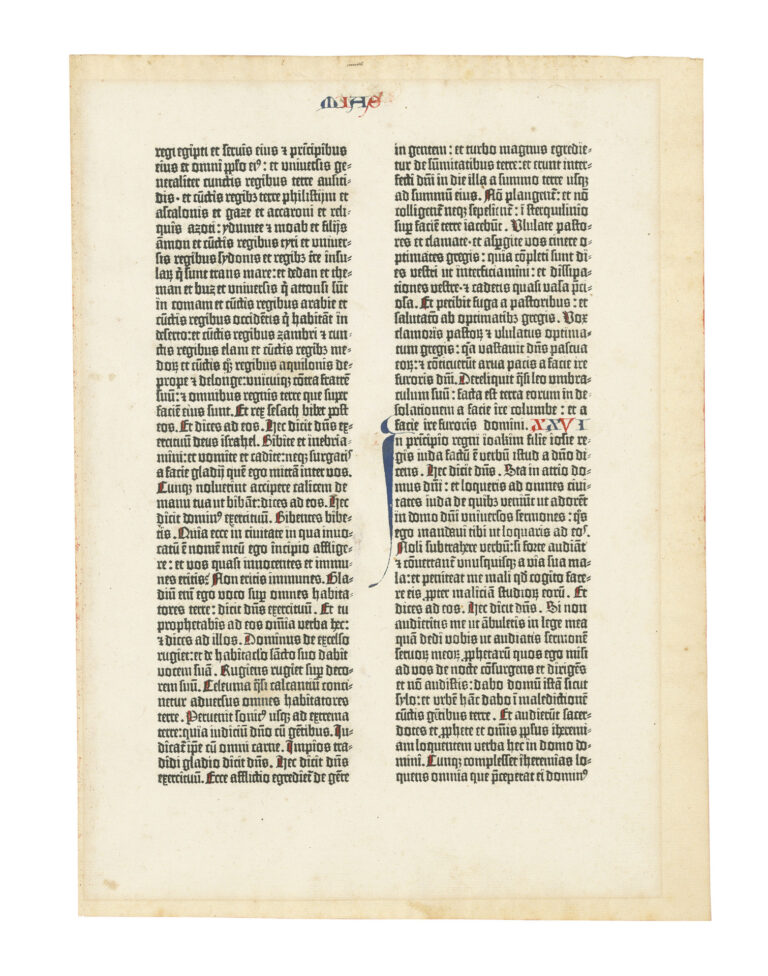 MIAS
regi egipti et seruis eius ⁊ prīcipibus
eius et omni pp̄lo ei⁹: et uniuersis ge-
neraliter cunctis regibus terre ausici-
dis· et cūctis regibȝ terre philistijm et
ascalonis et gaze et accaroni et reli-
quijs azoti: ydumee ⁊ moab et filijs
āmon et cūctis regibus tyri et uniuer-
sis regibus sydonis et regibȝ t̄re insu-
laꝝ q̄ sunt trans mare: et dedan et the-
man et buz et uniuersis q̄ attonsi sūt
in comam et cūctis regibus arabie et
cūctis regibus occidētis q̄ habitāt in
deserto: et cūctis regibus zambri ⁊ cun-
ctis regibus elam et cūctis regibȝ me-
doꝝ et cūctis qȝ regibus aquilonis de
prope ⁊ delonge: unicuiqȝ cōtra fratrē
suū: ⁊ omnibus regnis terre que supre
faciē eius sunt. Et rex sesach bibet post
eos. Et dices ad eos. Hec dicit dn̄s ex-
ercituū deus israhel. Bibite et inebria-
mini: et vomite et cadite: neqȝ surgatis
a facie gladij quē ego mittā inter vos.
Cunqȝ noluerint accipere calicem de
manu tua ut bibāt: dices ad eos. Hec
dicit domin⁹ exercituū. Bibentes bibe-
tis. Quia ecce in ciuitate in qua inuo-
catū ē nomē meū ego incipio afflige-
re: et vos quasi innocentes et immu-
nes eritis? Non eritis immunes. Gla-
diū em̄ ego voco sup̄ omnes habita-
tores terre: dicit dn̄s exercituū. Et tu
prophetabis ad eos om̄ia verba hec:
⁊ dices ad illos. Dominus de excelso
rugiet: et de habitaclo sācto suo dabit
vocem suā. Rugiens rugiet sup̄ deco-
rem suū. Celeuma q̄si calcantiū conci-
netur aduersus omnes habitatores
terre. Peruenit sonit⁹ usqȝ ad extrema
terre: quia iudiciū dn̄o cū gētibus. Iu-
dicat̄ ip̄e cū omni carne. Impios tra-
didi gladio dicit dn̄s. Hec dicit dn̄s
exercituū. Ecce afflictio egrediet̄ de gēte
in gentem: et turbo magnus egredie-
tur de sūmitatibus terre: et erunt inter-
fecti dn̄i in die illa a summo terre usqȝ
ad summū eius. Nō plangent̄: et nō
colligent̄ neqȝ sepelient̄: ī sterquilinio
sup̄ faciē terre iacebūt. Vlulate pasto-
res et clamate· et asp̄gite vos cinere o-
ptimates gregis: quia cōpleti sunt di-
es vestri ut interficiamini: et dissipa-
tiones vestre· ⁊ cadetis quasi vasa p̄ci-
osa. Et peribit fuga a pastoribus: et
saluatio ab optimatibȝ gregis. Vox
clamoris pastoꝝ ⁊ ululatus optima-
tum gregis: q̄a vastauit dn̄s pascua
eoꝝ: ⁊ cōticuerūt arua pacis a facie ire
furoris dn̄i. Dereliquit q̄si leo umbra-
culum suū: facta est terra eorum in de-
solationem a facie ire columbe: et a
facie ire furoris domini. XXVI
In prīcipio regni ioakim filie iosie re-
gis iuda factū ē verbū istud a dn̄o di-
cens. Hec dicit dn̄s. Sta in atrio do-
mus dn̄i: et loqueris ad omnes ciui-
tates iuda de quibȝ veniūt ut adorēt
in domo dn̄i vniuersos sermones: q̄s
ego mandaui tibi ut loquaris ad eos.
Noli subtrahere verbū: si forte audiāt
⁊ cōuertant̄ vnusquisqȝ a via sua ma-
la: et peniteat me mali qd̄ cogito face-
re eis ꝓpter maliciā studioꝝ eorū. Et
dices ad eos. Hec dicit dn̄s. Si non
audieritis me ut ābuletis in lege mea
quā dedi vobis ut audiatis sermonē
seruoꝝ meoꝝ ꝓphetarū quos ego misi
ad vos de nocte cōsurgens et dirigēs
et nō audistis: dabo domū istā sicut
sylo: et urbē hāc dabo ī maledictionē
cūctis gētibus terre. Et audierūt sacer-
dotes et ꝓphete et om̄is pp̄lus iheremi-
am loquentem verba hec in domo do-
mini. Cunqȝ complesset iheremias lo-
quens omnia que p̄ceperat ei domin⁹